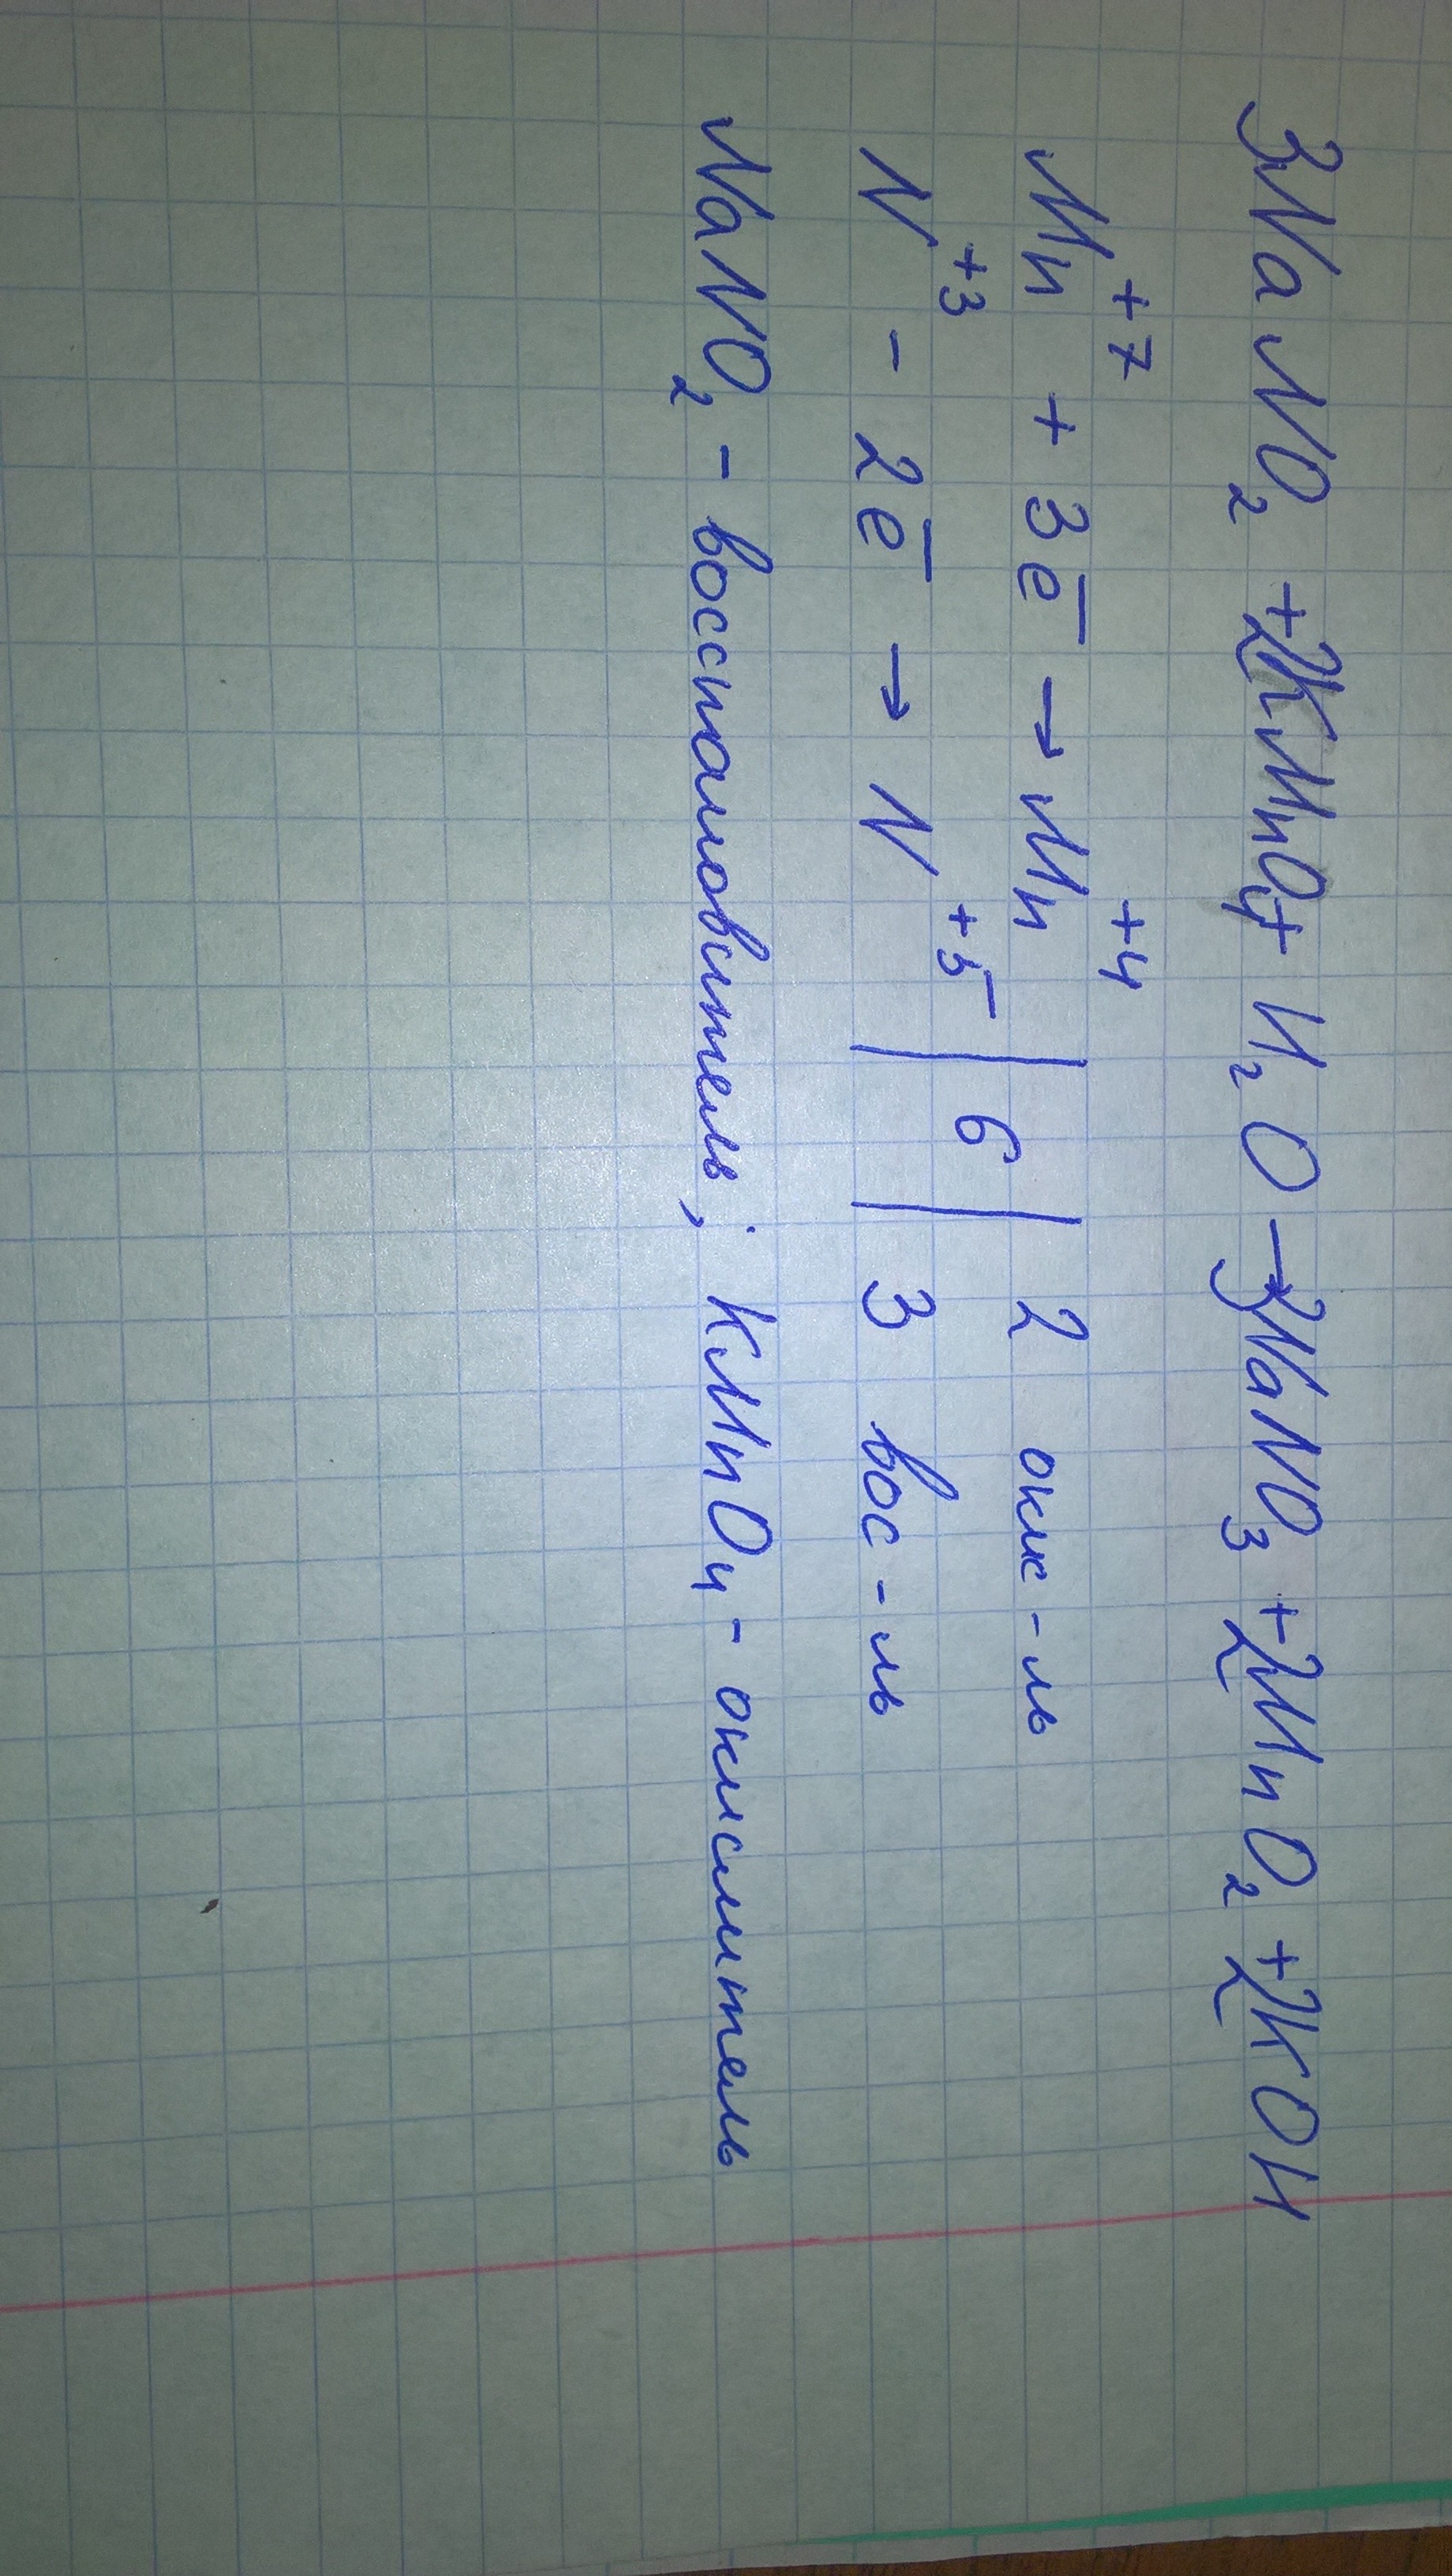 3NaNO₂ + 2KMnO₄ + H₂O → 3NaNO₃ + 2MnO₂ + 2KOH
Mn⁺⁷ + 3e̅ → Mn⁺⁴ | 6 | 2 окис-ль
N⁺³ - 2e̅ → N⁺⁵ | | 3 вос-ль
NaNO₂ - восстановитель; KMnO₄ - окислитель